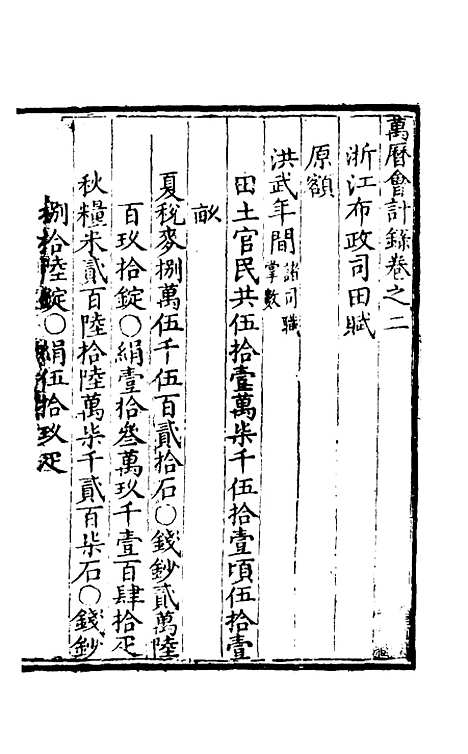 萬曆會計錄卷之二
浙江布政司田賦
原額
洪武年間諸司職掌數
田土官民共伍拾壹萬柒千伍拾壹頃伍拾壹
畝
夏稅麥捌萬伍千伍百貳拾石○錢鈔貳萬陸
百玖拾錠○絹壹拾叁萬玖千壹百肆拾疋
秋糧米貳百陸拾陸萬柒千貳百柒石○錢鈔
捌拾陸錠○絹伍拾玖疋